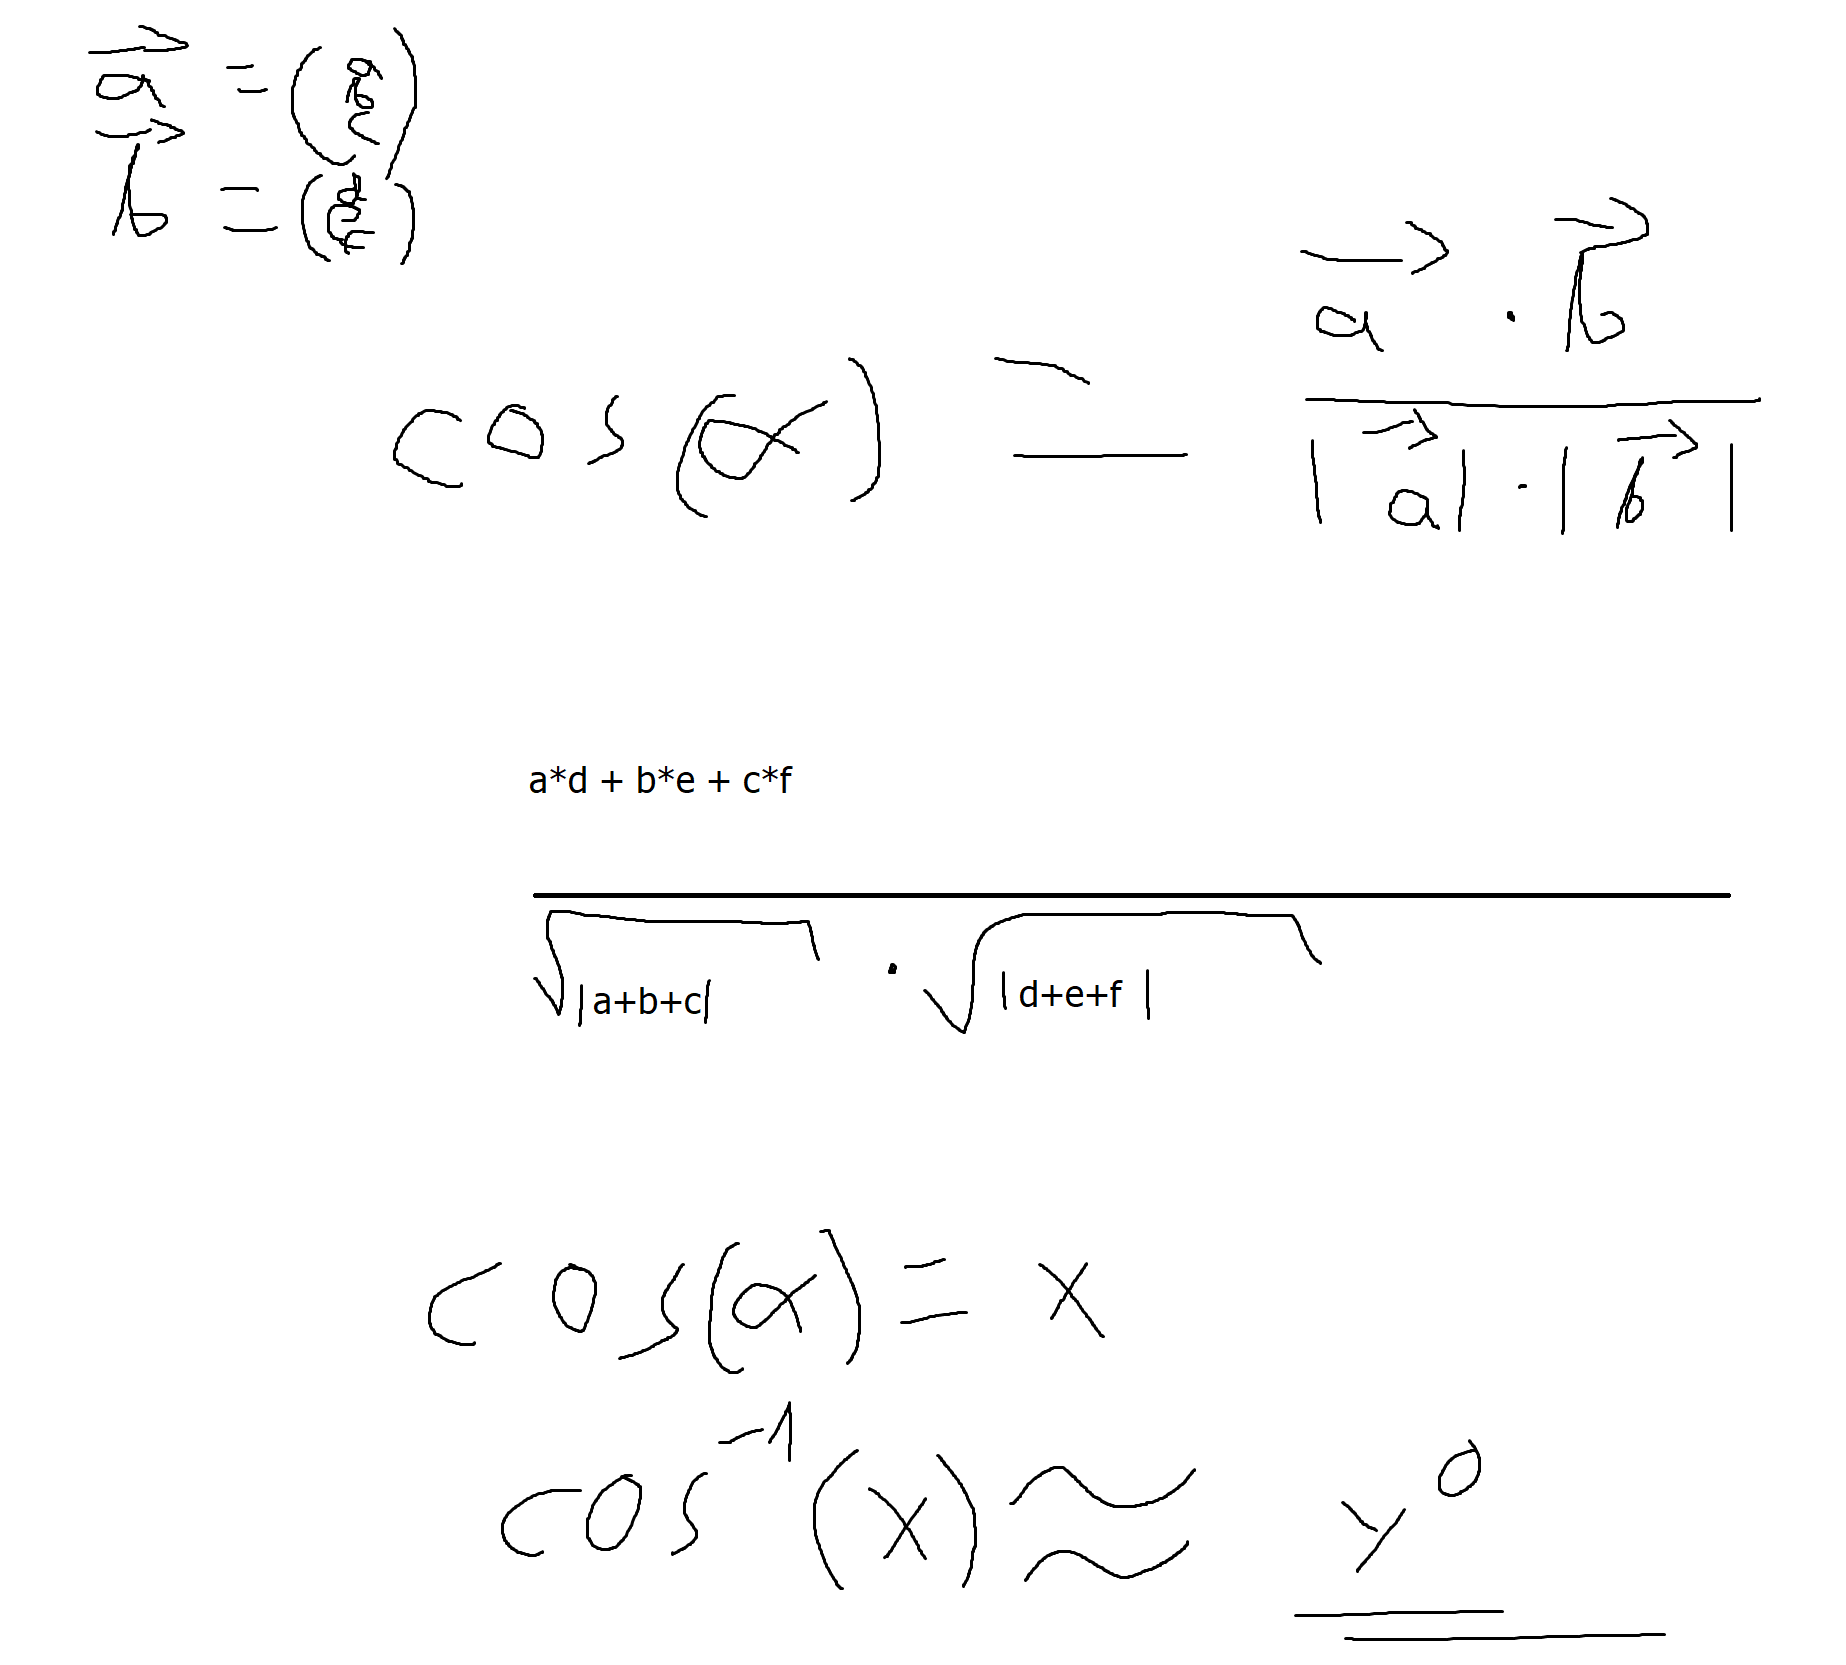 a⃗ = (a b c)
b⃗ = (d e f)
cos(α) = a⃗ · b⃗ / |a⃗| · |b⃗|
a*d + b*e + c*f
√|a+b+c| · √|d+e+f|
cos(α) = x
cos⁻¹(x) ≈ y°